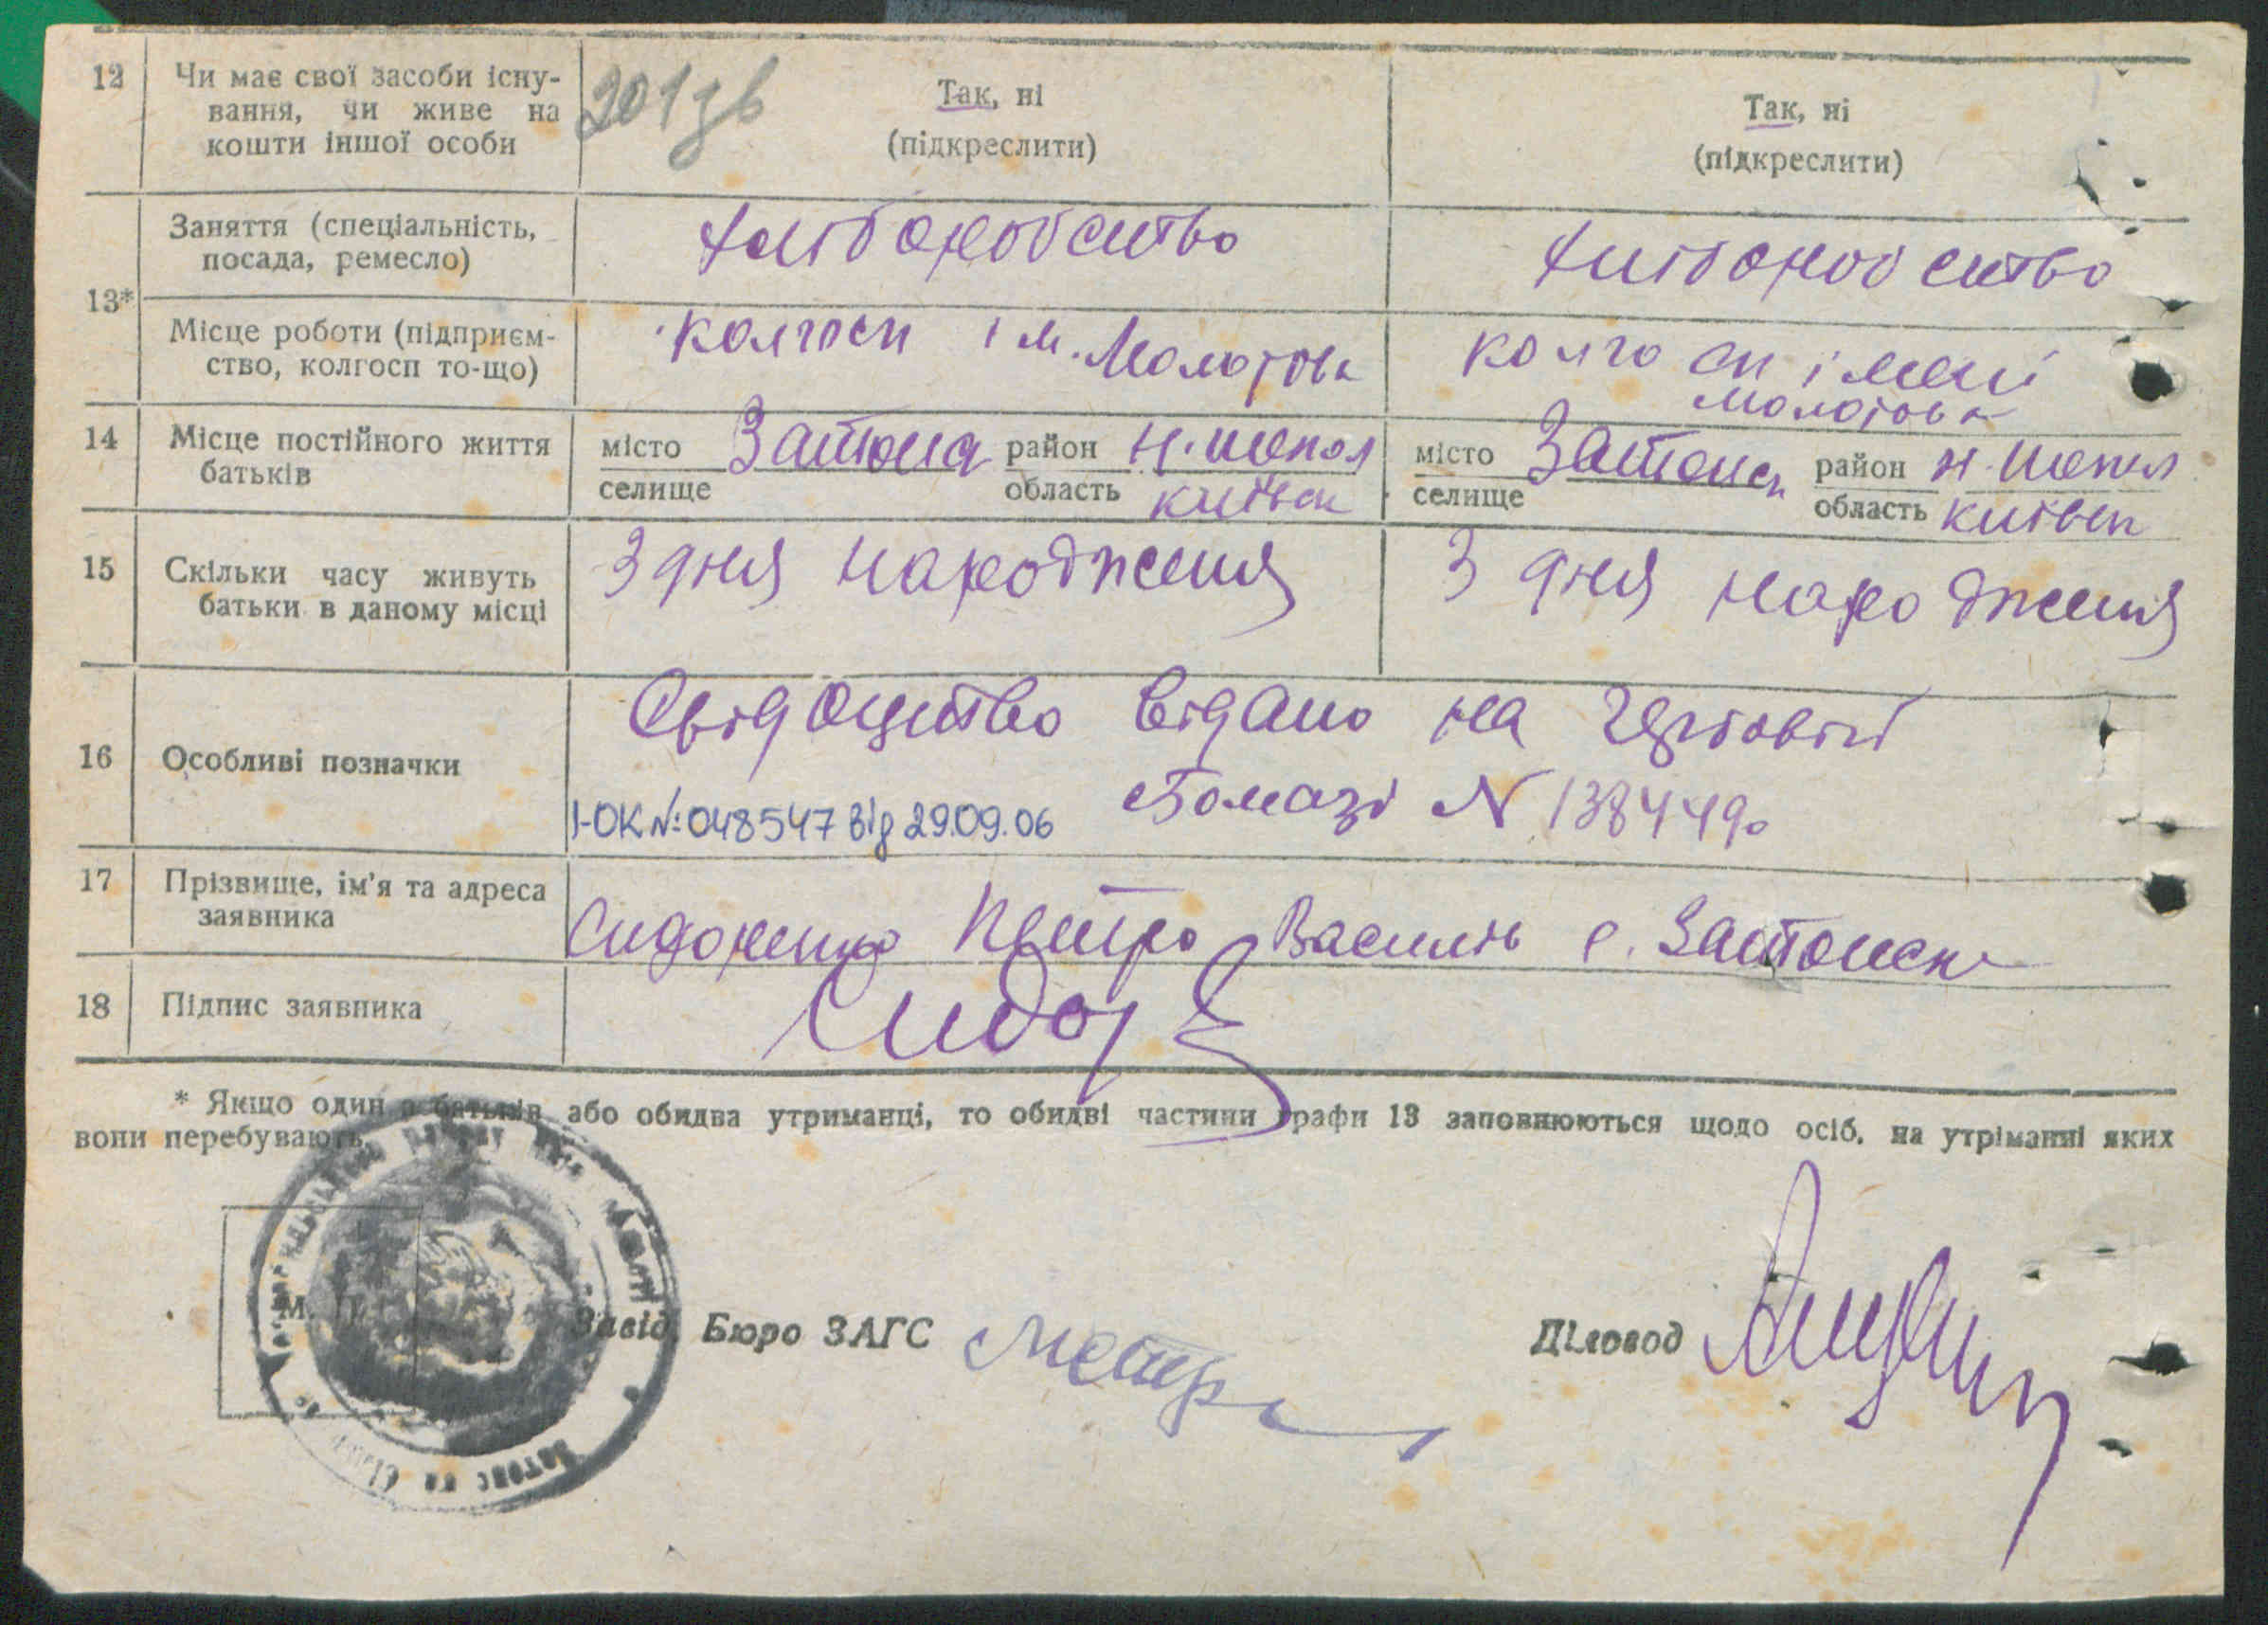 12 Чи має свої засоби існу-
вання, чи живе на
кошти іншої особи
201зв
Так, ні
(підкреслити)
Так, ні
(підкреслити)
13*
Заняття (спеціальність,
посада, ремесло)
хліборобство
хліборобство
Місце роботи (підприєм-
ство, колгосп то-що)
колгосп ім. Молотова
колгосп імені
Молотова
14 Місце постійного життя
батьків
місто
селище
район
область київск
місто
селище
район
область київск
15 Скільки часу живуть
батьки в даному місці
З дня народження
З дня народження
16 Особливі позначки
Свідоцтво відано на гербовій
N 1384490
I-ОК №: 048547 від 29.09.06
17 Прізвище, ім'я та адреса
заявника
Сидоренко Петро Василів с.
18 Підпис заявника
Сидор
* Якщо один з батьків або обидва утриманці, то обидві частини графи 13 заповнюються щодо осіб, на утріманні яких
вони перебувають.
М. П.
Завід. Бюро ЗАГС
Діловод